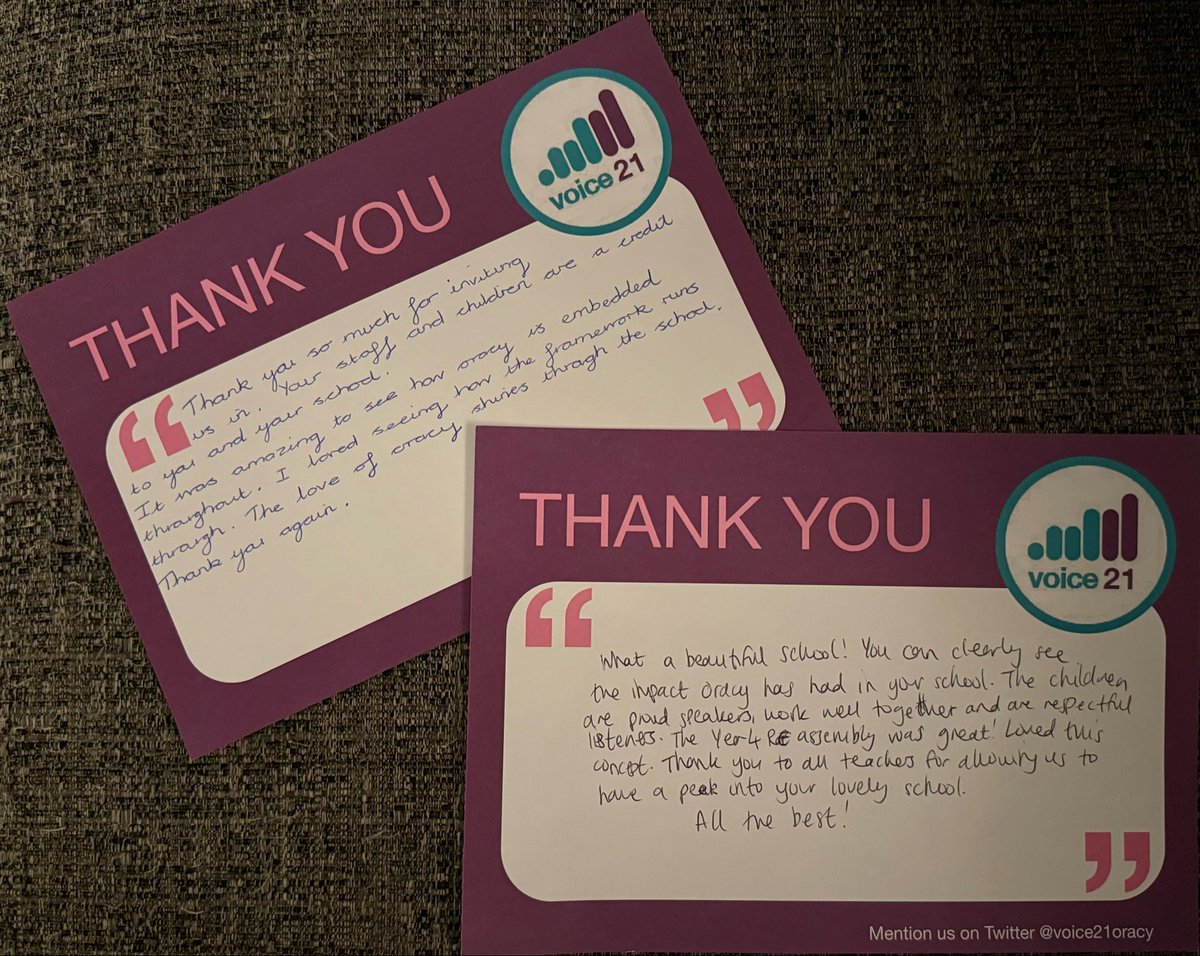 THANK YOU
voice 21
Thank you so much for inviting
us in. Your staff and children are a credit
to you and your school.
It was amazing to see how oracy is embedded
throughout. I loved seeing how the framework runs
through. The love of oracy shines through the school.
Thank you again.
THANK YOU
voice 21
What a beautiful school! You can clearly see
the impact oracy has had in your school. The children
are proud speakers, work well together and are respectful
listeners. The Year 4 RE assembly was great! Loved this
concept. Thank you to all teachers for allowing us to
have a peek into your lovely school.
All the best!
Mention us on Twitter @voice21oracy